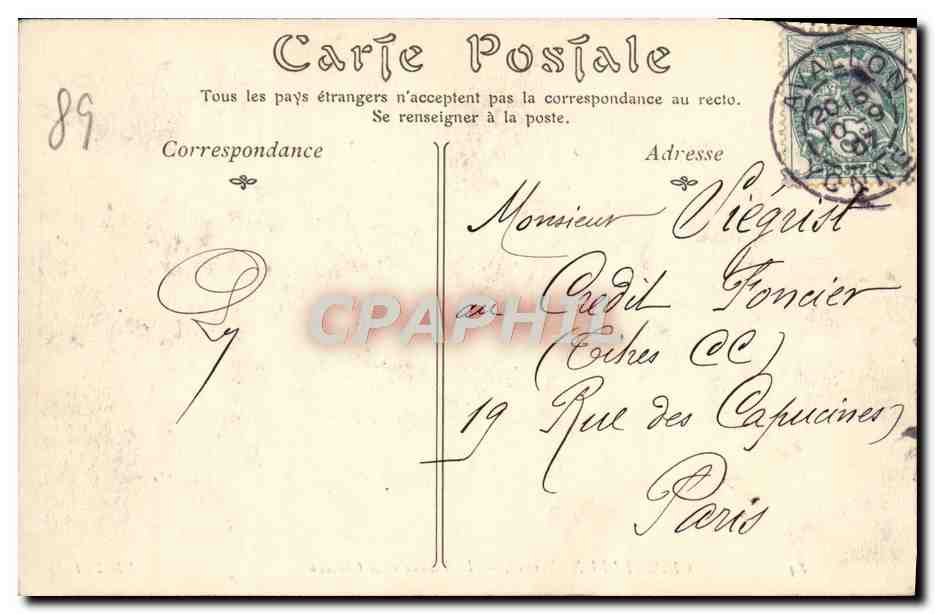 Carte Postale
Tous les pays étrangers n'acceptent pas la correspondance au recto.
Se renseigner à la poste.
89
Correspondance
Adresse
AVALLON
YONNE
Monsieur Viégrist
au Crédit Foncier
(Titres CC)
19 Rue des Capucines
Paris
CPAPHIL